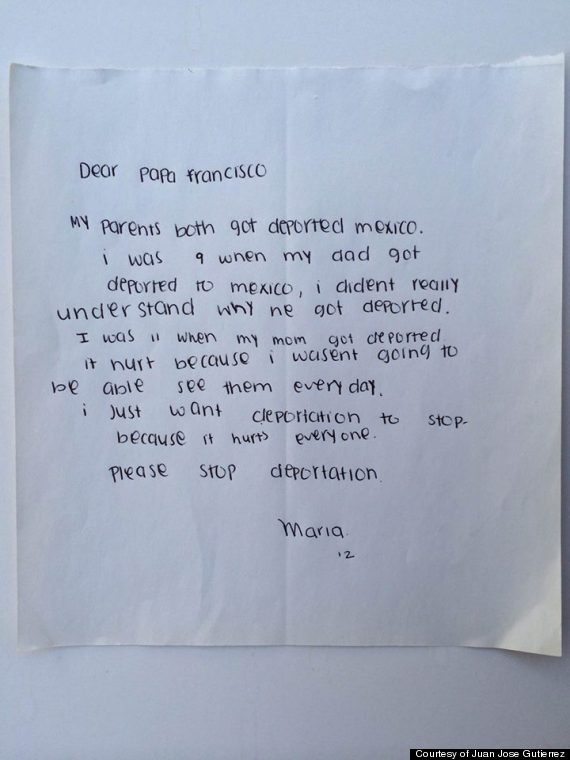 Dear Papa Francisco
MY Parents both got deported mexico.
i was 9 when my dad got
deported to mexico, i dident really
understand why he got deported.
I was 11 when my mom got deported
it hurt because i wasent going to
be able see them everyday.
i just want deportation to stop.
because it hurts everyone.
Please stop deportation.
Maria.
12
Courtesy of Juan Jose Gutierrez